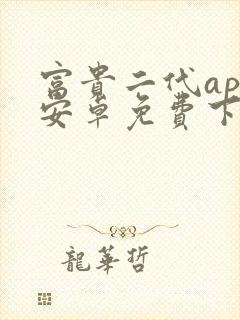 富貴二代ap
安卓免費下
龍華哲